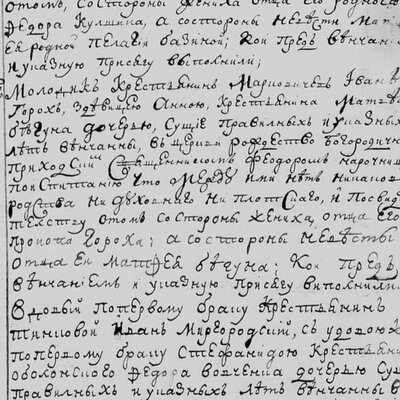 отомъ, состороны жениха отца его родного
Ѳедора Кулшипа, а состороны невѣсти мат
ея родной Пелагіи базиной; кои предъ вѣнчан
и указную присягу выполнили;
Молодикъ крестьянинъ Иван
Горохъ, здѣвицею Анною, крестьянина Матвѣ
бѣгуна дочерью, сущіе правильныхъ и указныхъ
лѣтъ вѣнчанны, въ церкви рождество богородичн
приходскимъ священникомъ Феодоромъ
поиспытанію что между ими нѣтъ никаков
родства ни духовнаго ни плотскаго, и посвид
отомъ состороны жениха, отца его
Прокопа Гороха; а состороны невѣсты
отца ея Матфея бѣгуна; кои предъ
вѣнчаніемъ и указную присягу выполнили.
Вдовый попервому браку крестьянинъ
Иванъ Миргородскій, съ удовою
попервому браку Стефанидою крестьяни
оболонского Ѳедора вовченка дочерью сущ
правильныхъ и указныхъ лѣтъ вѣнчанны в